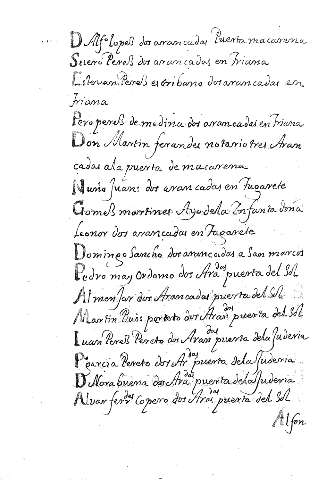 D. Alfo lopeß dos arancadas Puerta macarena
Sueró Pereß dos arancadas en Triana
Estevan Pereß escribano dos arancadas en
Triana
Pero pereß de medina dos arancadas en Triana
Don Martin ferandez notario tres Aran
cadas ala puerta de macarena
Nuño Juanz dos arancadas en Tagarete
Gomeß martinez Ayo dela Infanta doña
Leonor dos arancadas en Tagarete
Domingo Sancho dos arancadas a San marcos
Pedro mayordomo dos Arandas puerta del Sol
Almenjar dos Arancadas puerta del Sol
Martin Ruis dos Arandas puerta del Sol
Iuan Pereß Pereto dos Arandas puerta dela Juderia
P. garcia Pereto dos Ardas puerta dela Juderia
D. Nora buena dos Arandas puerta dela Juderia
Alvar ferrdas Copero dos Ardas puerta del Sol
Alfon